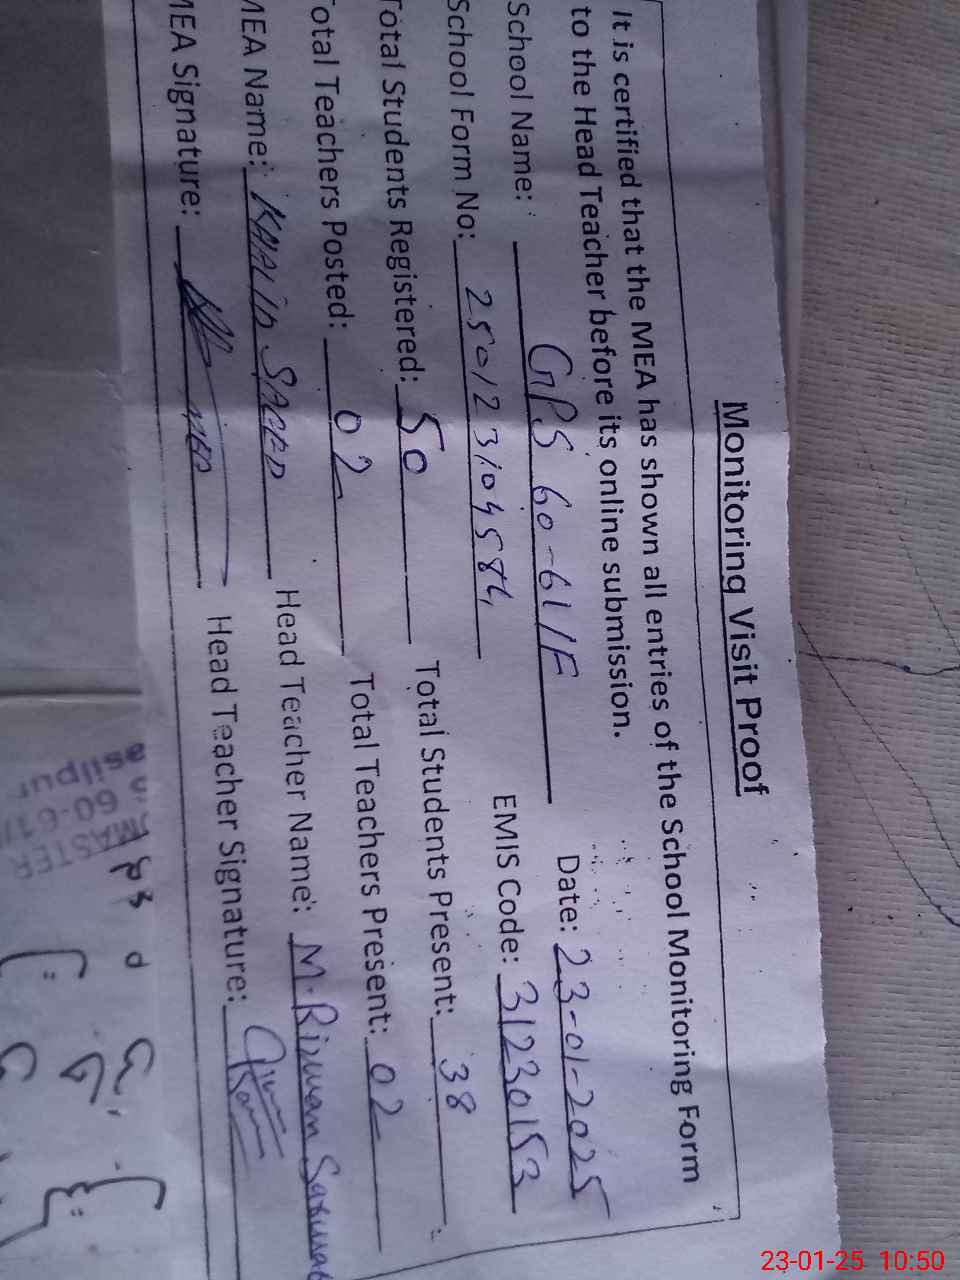 Monitoring Visit Proof
It is certified that the MEA has shown all entries of the School Monitoring Form
to the Head Teacher before its online submission.
School Name: GPS 60-61/F Date: 23-01-2025
School Form No: 250123104584 EMIS Code: 31230153
Total Students Registered: 50 Total Students Present: 38
Total Teachers Posted: 02 Total Teachers Present: 02
MEA Name: KHALID SAEED Head Teacher Name: M. Rizwan Sarwar
MEA Signature: MEA Head Teacher Signature:
MASTER
60-61/
asilpur
23-01-25 10:50